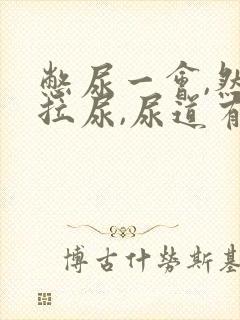 憋尿一會,然
拉尿,尿道有
博古什勞斯基